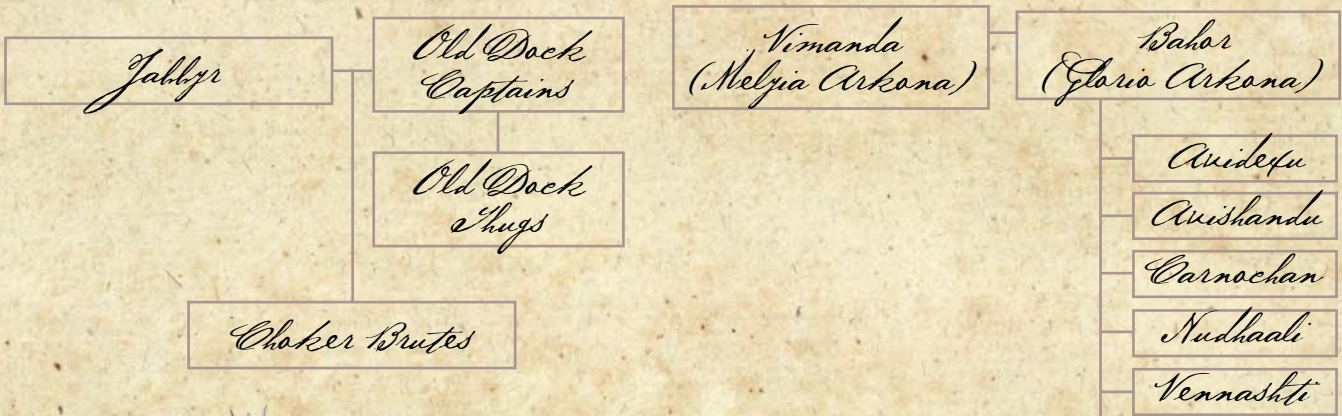 Jabbyr
Old Dock
Captains
Old Dock
Thugs
Choker Brutes
Vimanda
(Melyia Arkona)
Bahor
(Glorio Arkona)
Avidexu
Avishandu
Carnochan
Nudhaali
Vennashti